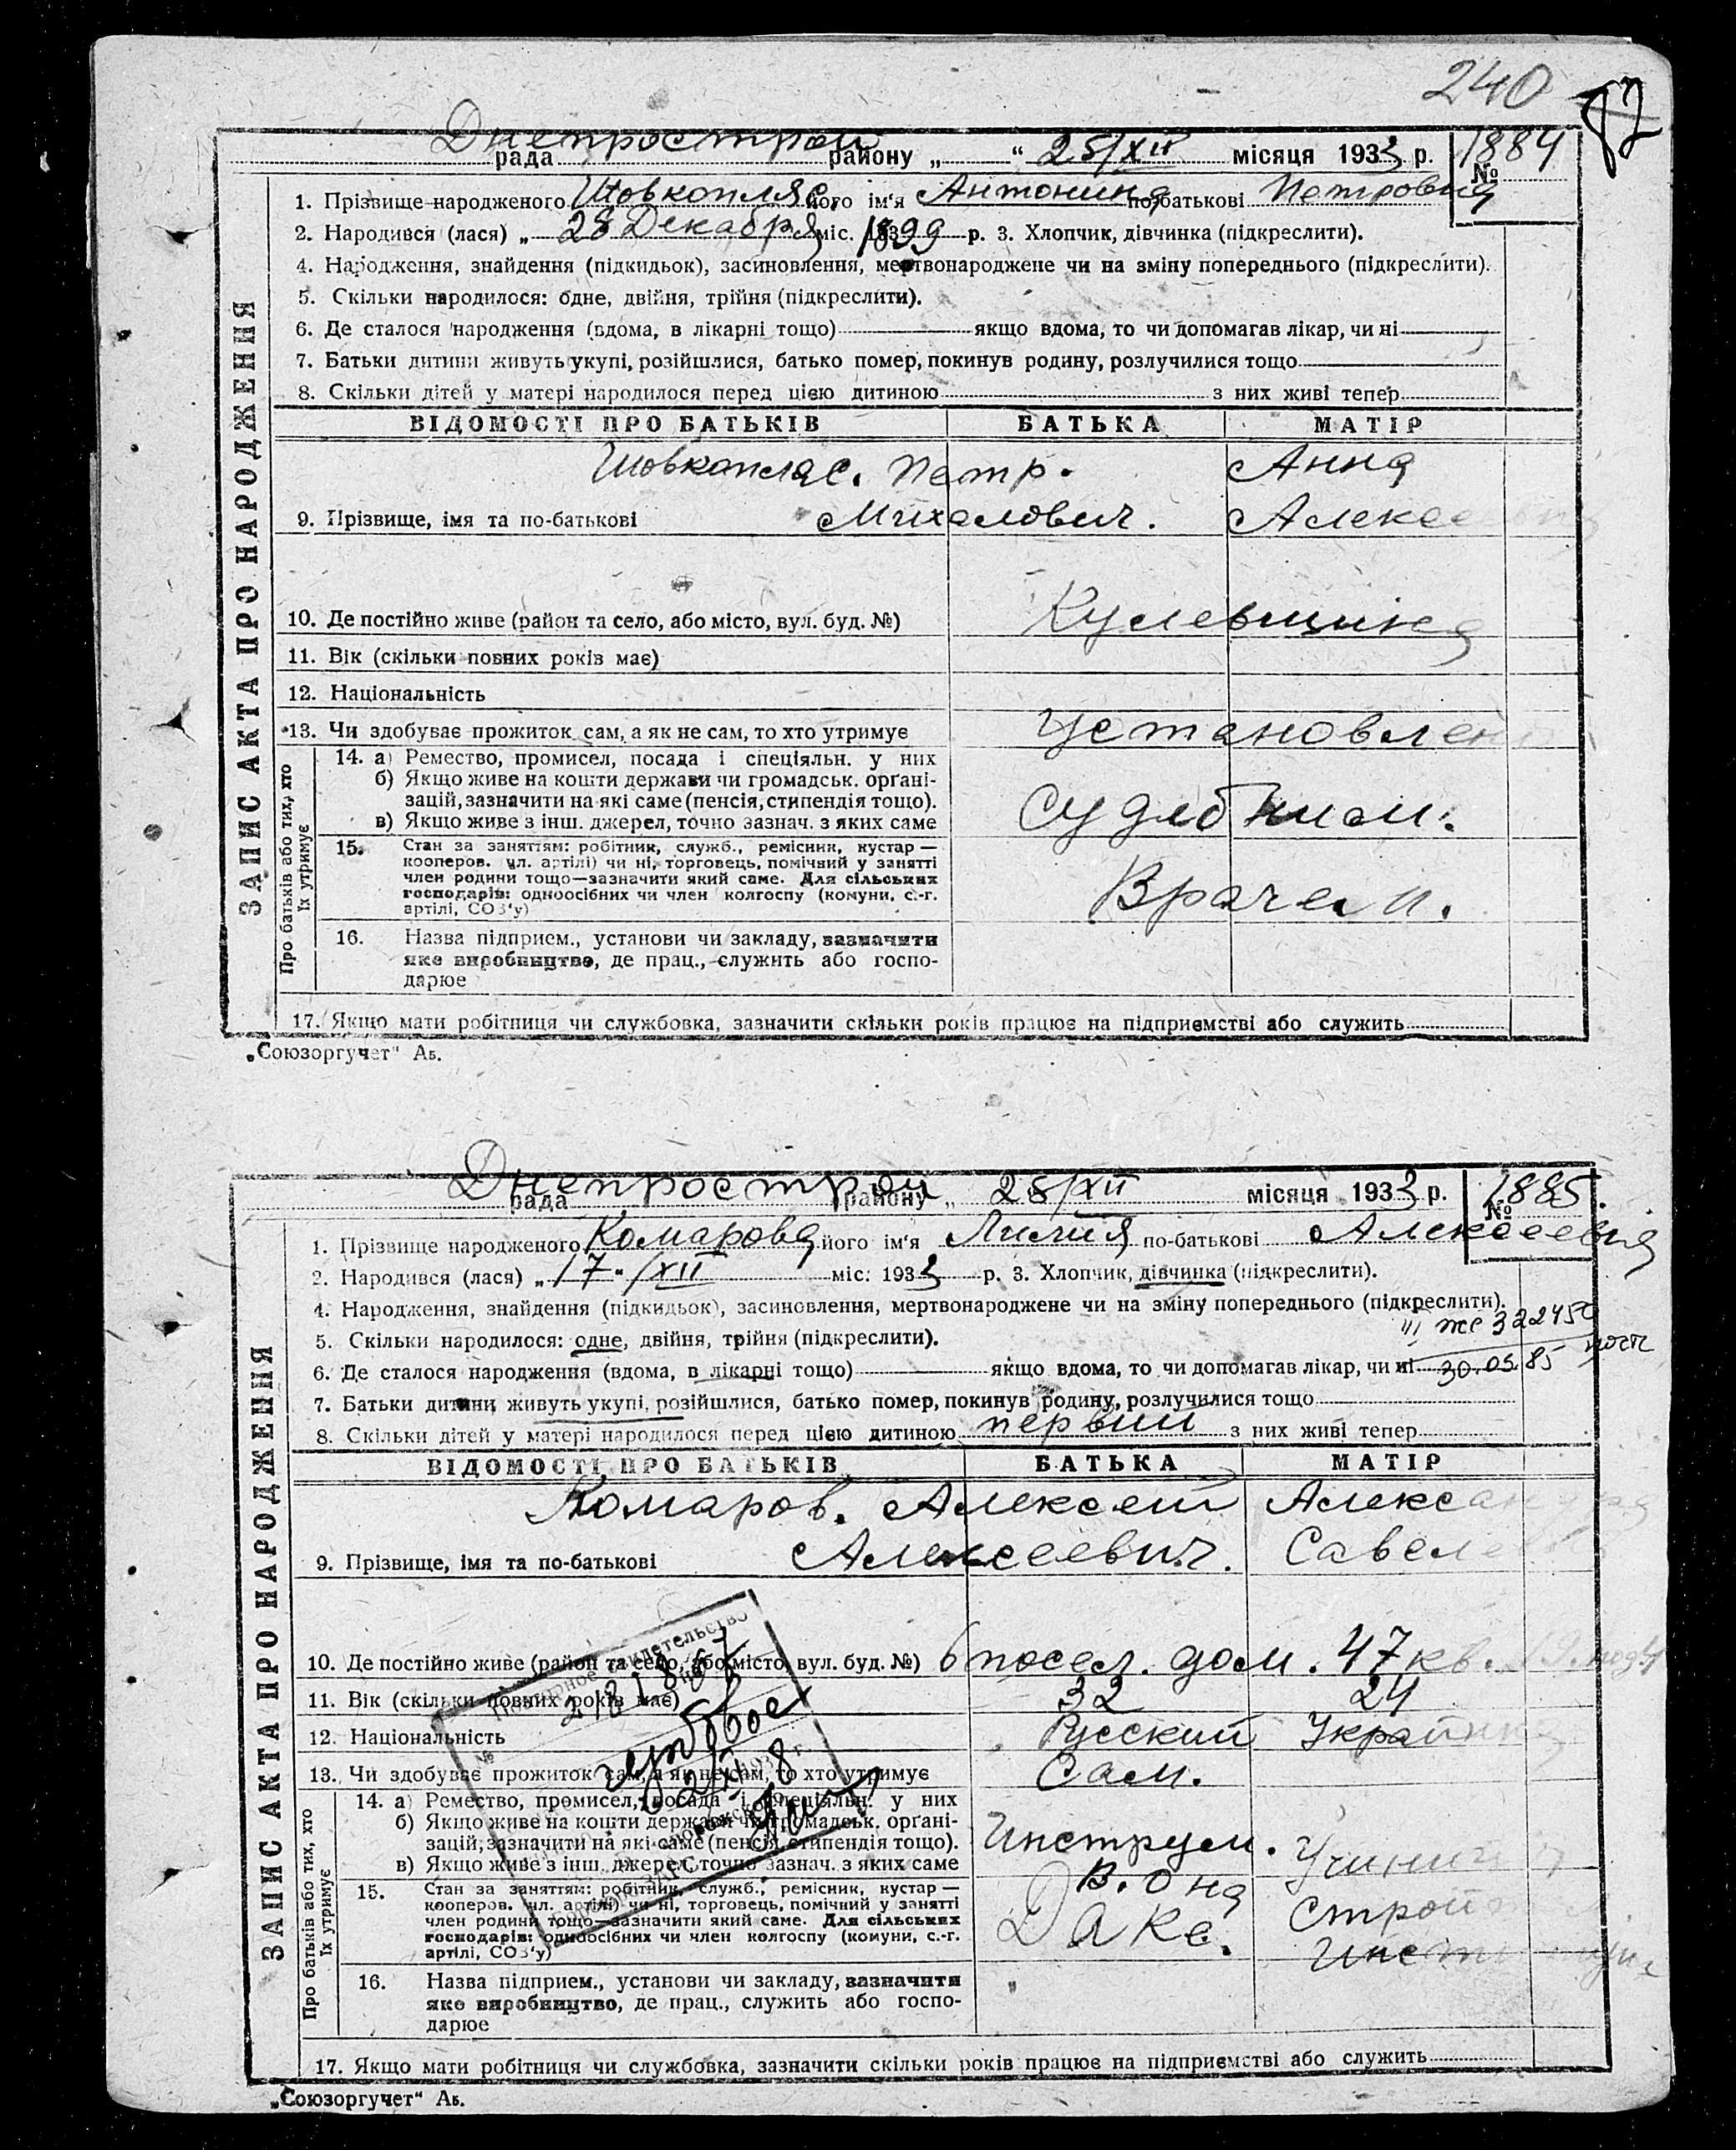 240
Днепрострой
рада району „ “ 25/XII місяця 1933 р. № 1884
1. Прізвище народженого Шовкопляс його ім'я Антонина по батькові Петровна
2. Народився (лася) „ 28 Декабря міс. 1899 р. 3. Хлопчик, дівчинка (підкреслити).
4. Народження, знайдення (підкидьок), засиновлення, мертвонароджене чи на зміну попереднього (підкреслити).
5. Скільки народилося: одне, двійня, трійня (підкреслити).
6. Де сталося народження (вдома, в лікарні тощо) якщо вдома, то чи допомагав лікар, чи ні
7. Батьки дитини живуть укупі, розійшлися, батько помер, покинув родину, розлучилися тощо
8. Скільки дітей у матері народилося перед цією дитиною з них живі тепер
ЗАПИС АКТА ПРО НАРОДЖЕННЯ
ВІДОМОСТІ ПРО БАТЬКІВ БАТЬКА МАТІР
Шовкопляс. Петр. Анна
9. Прізвище, імя та по-батькові Михалович. Алексеевна
10. Де постійно живе (район та село, або місто, вул. буд. №) Кулевщина
11. Вік (скільки повних років має)
12. Національність
13. Чи здобуває прожиток сам, а як не сам, то хто утримує Установлен
Про батьків або тих, хто їх утримує
14. а) Ремество, промисел, посада і спеціяльн. у них
б) Якщо живе на кошти держави чи громадськ. орґані-
зацій, зазначити на які саме (пенсія, стипендія тощо). Судебним.
в) Якщо живе з інш. джерел, точно зазнач. з яких саме
15. Стан за заняттям: робітник, служб., ремісник, кустар —
кооперов. чл. артілі) чи ні, торговець, помічний у занятті
член родини тощо—зазначити який саме. Для сільських
господарів: одноосібних чи член колгоспу (комуни, с.-г. Врачем.
артілі, СОЗ'у)
16. Назва підприєм., установи чи закладу, зазначити
яке виробництво, де прац., служить або госпо-
дарює
17. Якщо мати робітниця чи службовка, зазначити скільки років працює на підприємстві або служить
„Союзоргучет“ Ав.
Днепрострой
рада району „ 25/XII місяця 1933 р. № 1885.
1. Прізвище народженого Комарова його ім'я Лилия по-батькові Алексеевна
2. Народився (лася) „ 17. /XII міс. 1933 р. 3. Хлопчик, дівчинка (підкреслити).
4. Народження, знайдення (підкидьок), засиновлення, мертвонароджене чи на зміну попереднього (підкреслити).
5. Скільки народилося: одне, двійня, трійня (підкреслити).
6. Де сталося народження (вдома, в лікарні тощо) якщо вдома, то чи допомагав лікар, чи ні 30.05.85
7. Батьки дитини живуть укупі, розійшлися, батько помер, покинув родину, розлучилися тощо
8. Скільки дітей у матері народилося перед цією дитиною первий з них живі тепер
ЗАПИС АКТА ПРО НАРОДЖЕННЯ
ВІДОМОСТІ ПРО БАТЬКІВ БАТЬКА МАТІР
Комаров. Алексей Александра
9. Прізвище, імя та по-батькові Алексеевич. Савел
10. Де постійно живе (район та село, або місто, вул. буд. №) 6 посел. дом. 47 кв.
11. Вік (скільки повних років має) 32 24
12. Національність Русский Украинка
13. Чи здобуває прожиток сам, а як не сам, то хто утримує Сам.
Про батьків або тих, хто їх утримує
14. а) Ремество, промисел, посада і спеціяльн. у них
б) Якщо живе на кошти держави чи громадськ. орґані-
зацій, зазначити на які саме (пенсія, стипендія тощо). Инструм.
в) Якщо живе з інш. джерел, точно зазнач. з яких саме
15. Стан за заняттям: робітник, служб., ремісник, кустар —
кооперов. чл. артілі) чи ні, торговець, помічний у занятті
член родини тощо—зазначити який саме. Для сільських
господарів: одноосібних чи член колгоспу (комуни, с.-г.
артілі, СОЗ'у)
16. Назва підприєм., установи чи закладу, зазначити
яке виробництво, де прац., служить або госпо-
дарює
17. Якщо мати робітниця чи службовка, зазначити скільки років працює на підприємстві або служить
„Союзоргучет“ Ав.